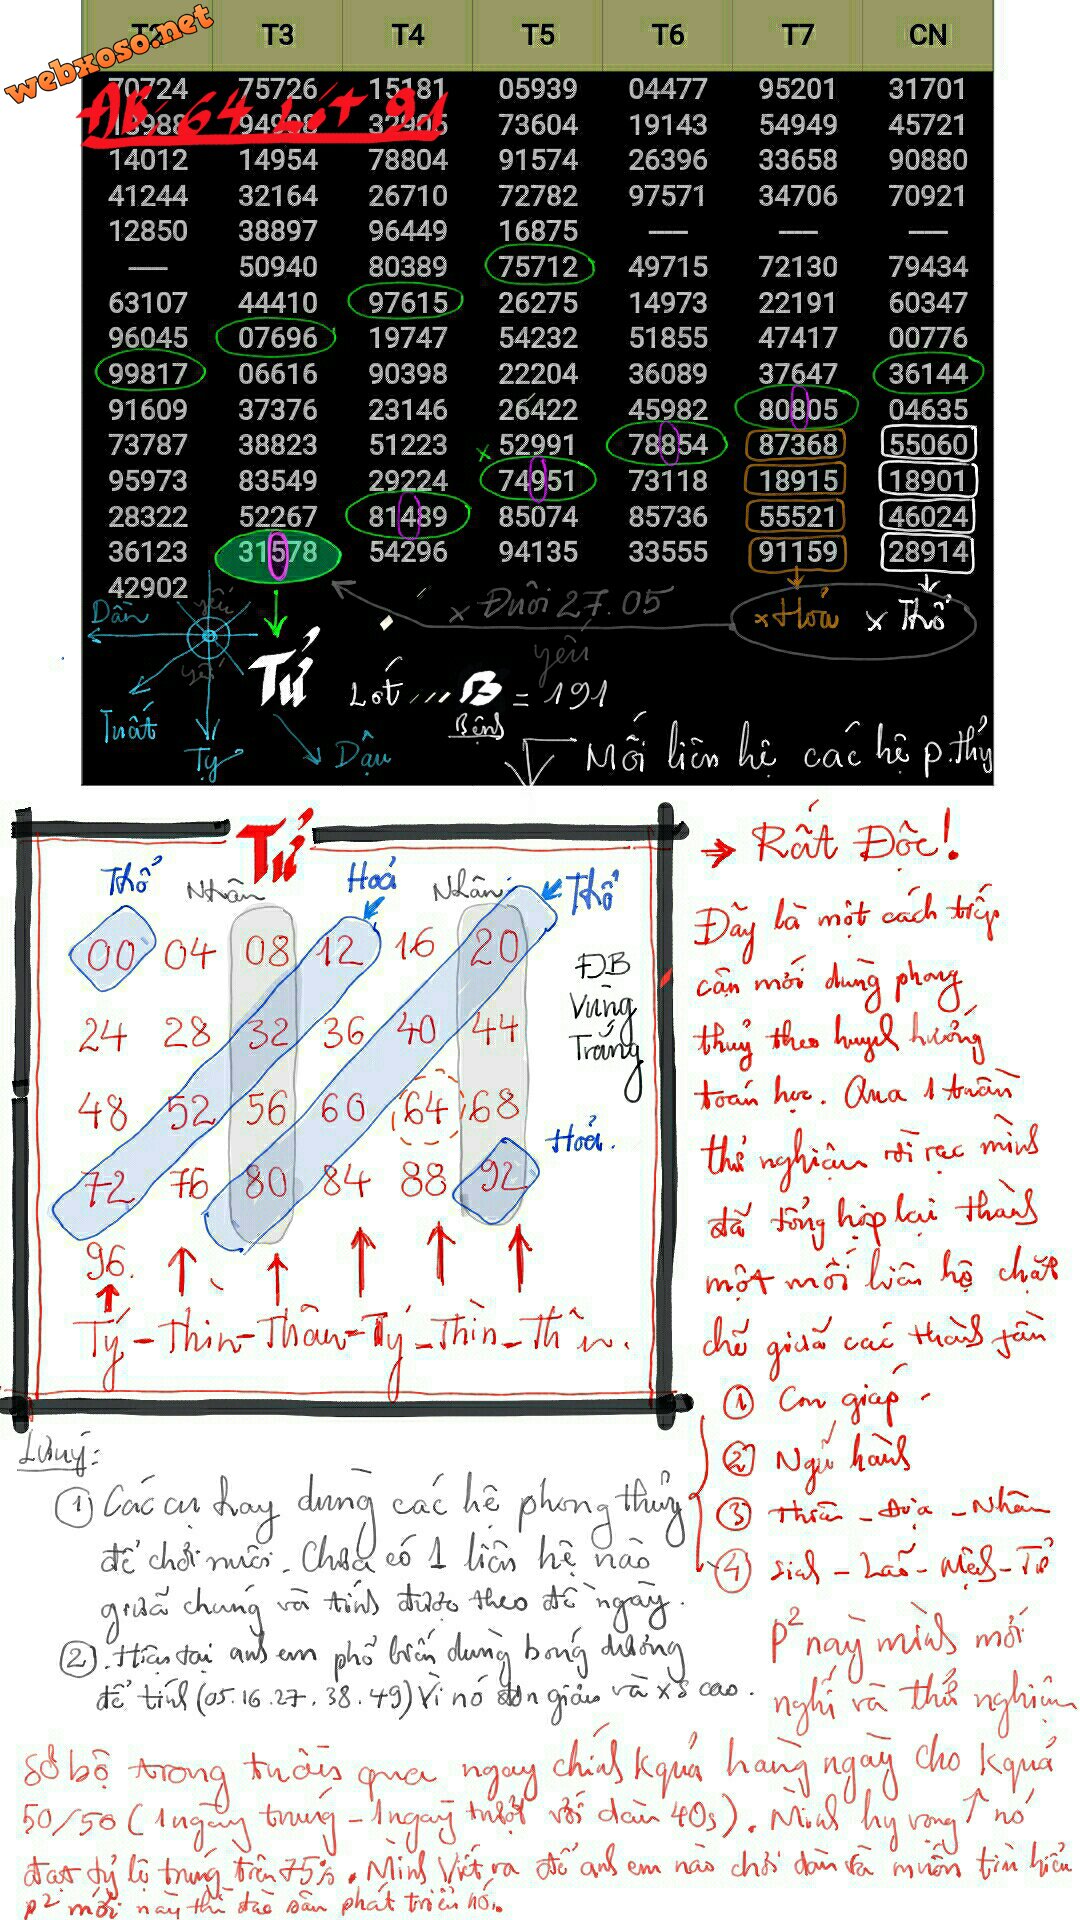 webxoso.net
T2 T3 T4 T5 T6 T7 CN
70724 75726 15181 05939 04477 95201 31701
73604 19143 54949 45721
ĐB: 64 Lót 91
14012 14954 78804 91574 26396 33658 90880
41244 32164 26710 72782 97571 34706 70921
12850 38897 96449 16875 — — —
— 50940 80389 75712 49715 72130 79434
63107 44410 97615 26275 14973 22191 60347
96045 07696 19747 54232 51855 47417 00776
99817 06616 90398 22204 36089 37647 36144
91609 37376 23146 26422 45982 80805 04635
73787 38823 51223 x 52991 78854 87368 55060
95973 83549 29224 74951 73118 18915 18901
28322 52267 81489 85074 85736 55521 46024
36123 31578 54296 94135 33555 91159 28914
42902
Dần yếu x Đuôi 27.05 x Hoả x Thổ
yếu yếu
Tứ Lót ... B = 191
Tuất Bệnh
Tỵ Dậu Mối liên hệ các hệ p.thủy
Tứ
Thổ Nhân Hoả Nhân Thổ
00 04 08 12 16 20
24 28 32 36 40 44
48 52 56 60 64 68
72 76 80 84 88 92
96.
ĐB
Vùng
Trắng
Hoả.
Tý - Thìn - Thân - Tý - Thìn - Thân.
→ Rất Độc!
Đây là một cách tiếp
cận mới dùng phong
thuỷ theo huynh hướng
toán học. Qua 1 tuần
thử nghiệm rời rạc mình
đã tổng hợp lại thành
một mối liên hệ chặt
chẽ giữa các thành fần
① Con giáp
② Ngũ hành
③ Thiên - Địa - Nhân
④ Sinh - Lão - Bệnh - Tử
Lưu ý:
① Các cụ hay dùng các hệ phong thủy
để chơi nuôi. Chưa có 1 liên hệ nào
giữa chúng và tính được theo đề ngày.
② Hiện tại anh em phổ biến dùng bóng dương
để tính (05.16.27.38.49) Vì nó đơn giản và xs cao.
P² này mình mới
nghĩ và thử nghiệm
sơ bộ trong tuần qua ngay chính kquả hàng ngày cho kquả
50/50 (1 ngày trúng - 1 ngày trượt với dàn 40s). Mình hy vọng nó
đạt tỷ lệ trúng trên 75%. Mình viết ra để anh em nào chơi dàn và muốn tìm hiểu
p² mới này thì đào sâu phát triển nó.